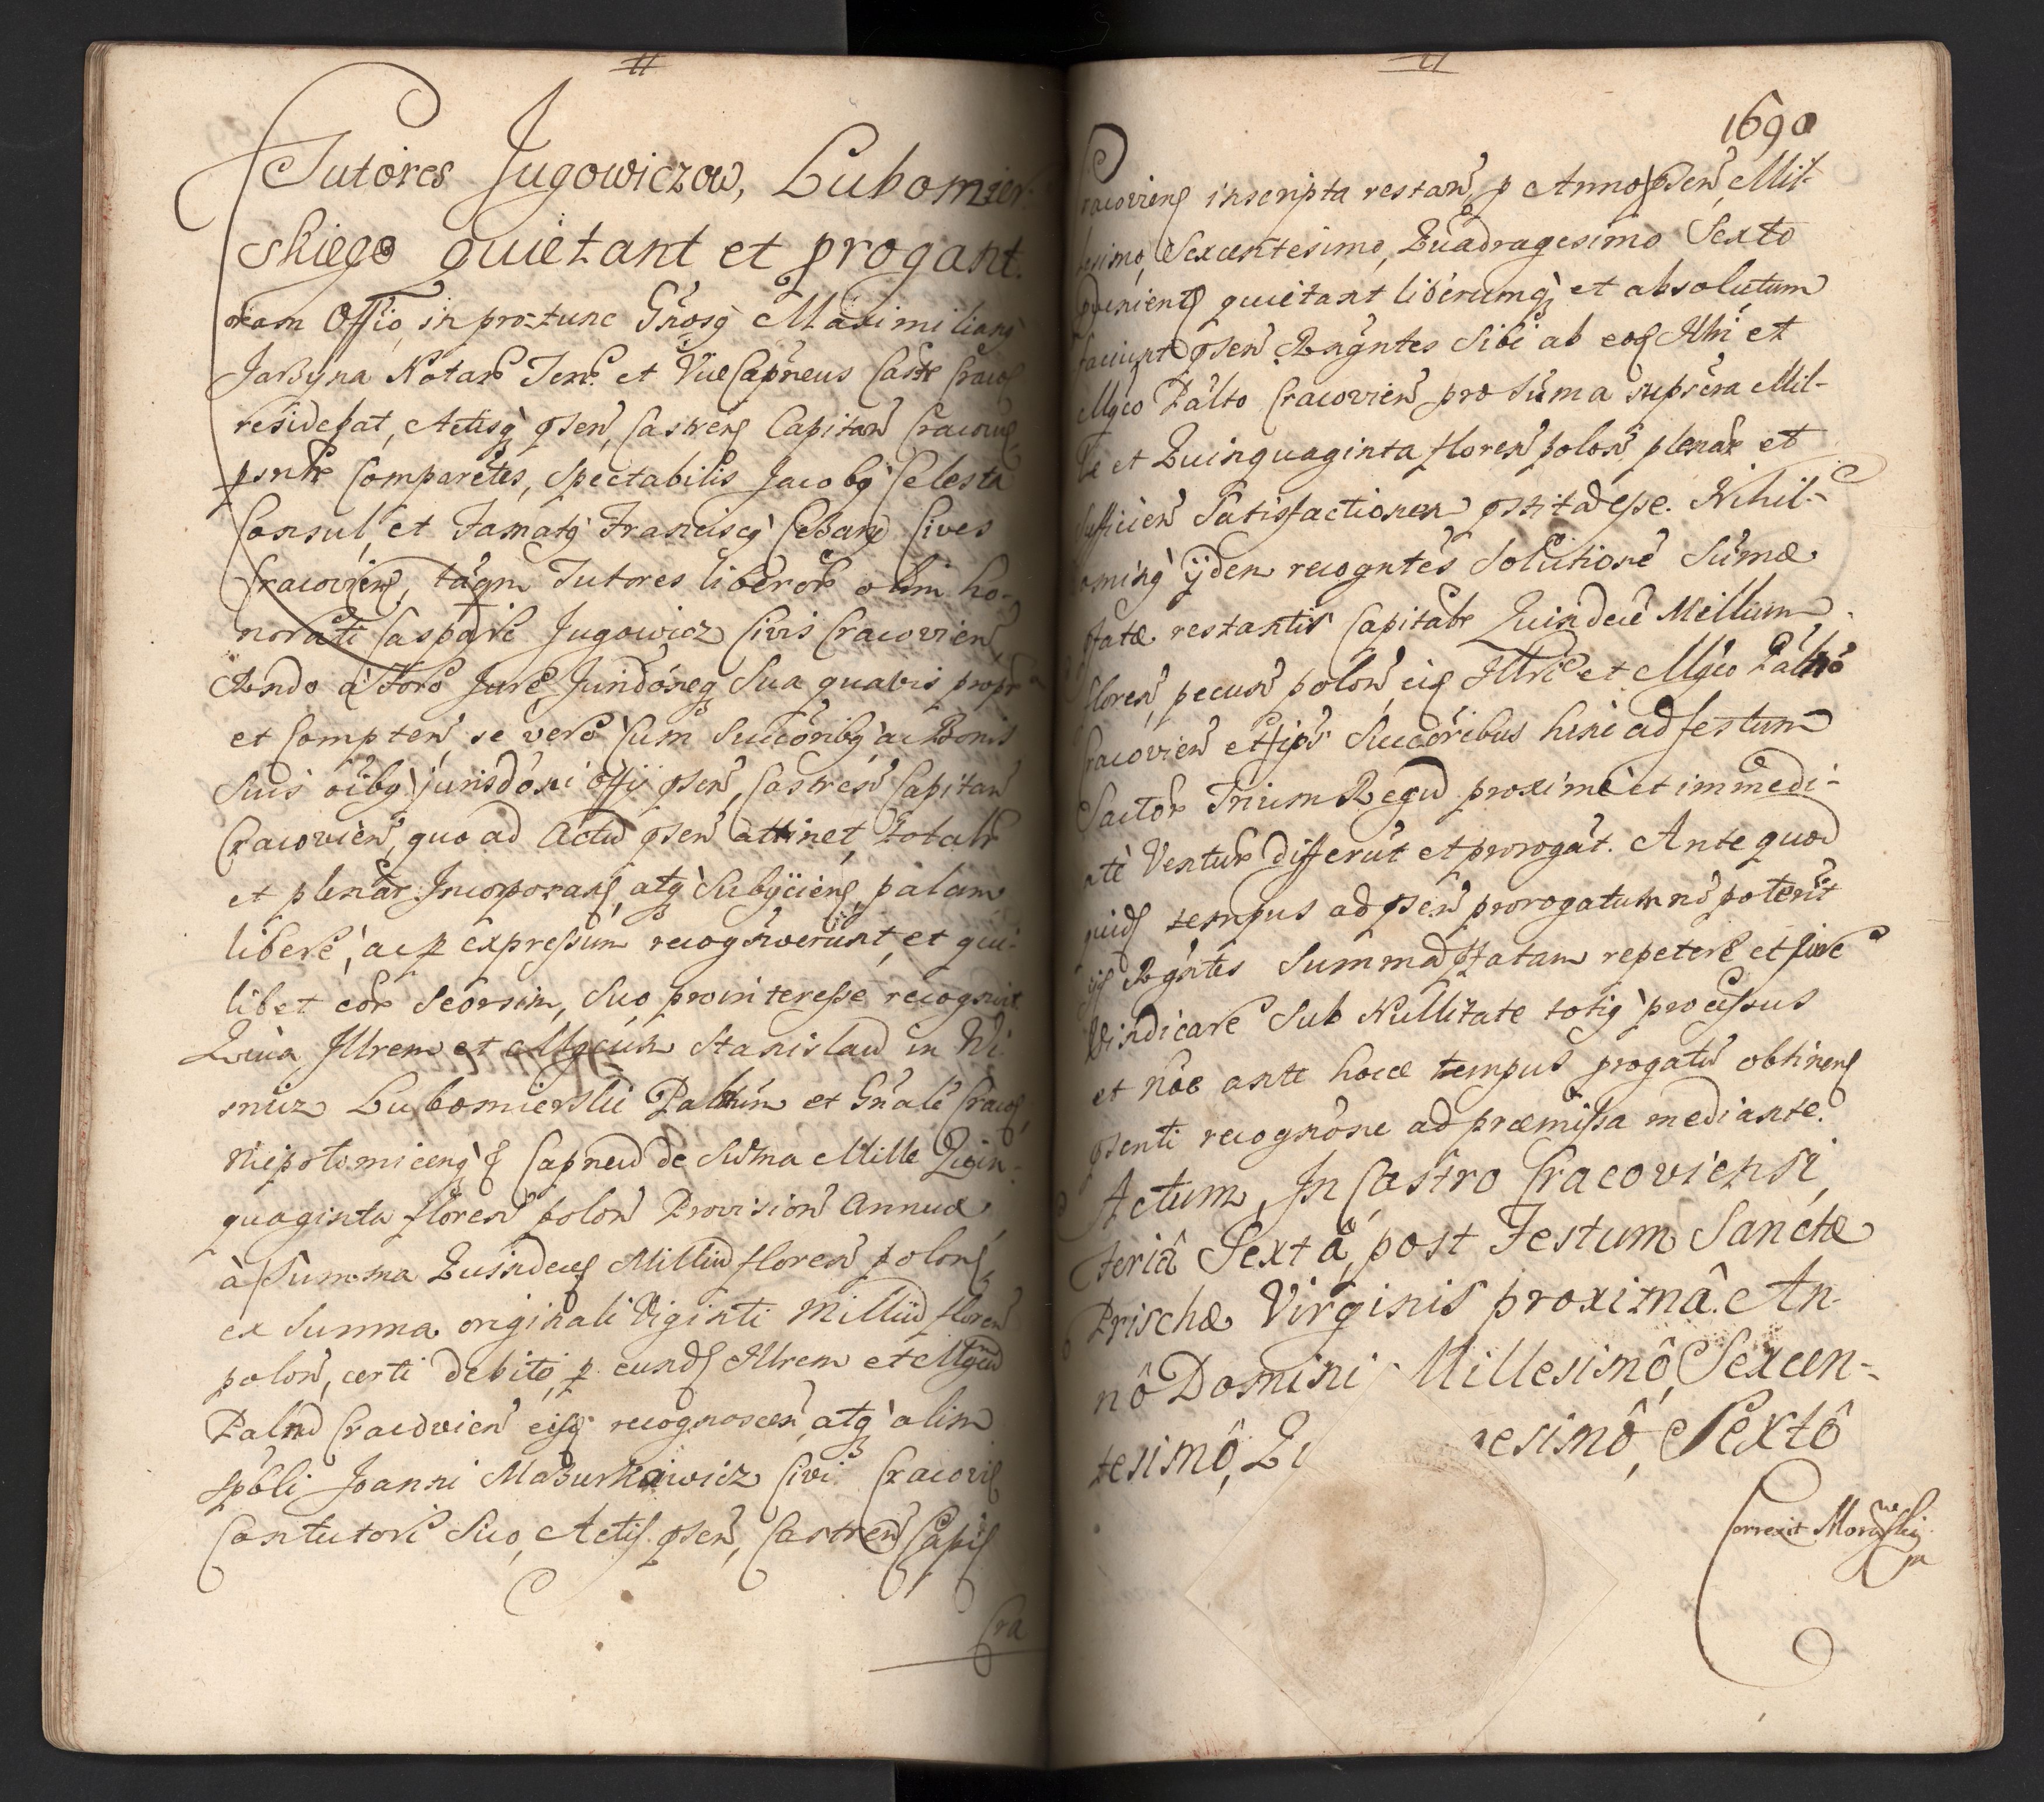 Tutores Jugowiczow, Lubomier-
skiego quietant et progant.
oram Offio, in pro tunc Gnosq Maximilianq
Jarzyna Notare Tenr. et ViceCapneus Castr Cracoq
residebat, Actisq psen, Castrenq Capitan Cracovienq
psntr Comparetes, Spectabilis Jacobq Celesta
Consul, et Famatq Franciscq Cezarq Cives
Cracovienq, tãqm Tutores liberor olim ho-
norati Caspare Jugowicz Civis Cracovien,
Rndo à Foro Jure Jurisdoneq Sua quavis propr
et Compten se vero cum Succoribq ac Bonis
Suis oibq jurisdoni Offij psen, Castren Capitan
Cracovien, quo ad Actũ psen attinet, totalr
et plenar Incorporanq, atq Subijcienq, palam
libere, ac p expressum recognoverunt, et qui-
libet eor Seorsim, Suo prointeresse recognovit
Quia Illrem et Mgcum Stanislaũ in Wi
snicz Lubomierski Paltnũm et Gnale Cracoq
Niepolomicenq q Capneũ de Sũma Mille Quin-
quaginta floren polon Provision Annuæ
à Summa Quindecq Milliũ floren polonq
ex Summa originali Viginti Milliũ floren
polon, certi debiti, p eundq Illrem et Mgcũ
Palnũ Cracovien eisq recognoscen, atq alim
Spbli Joanni Mazurkowicz Civi Cracoviq
Contutori Suo, Actiq psen, Castren Capiq
Cra
1690
racovienq inscripta restan, p Anno psen, Mil-
lesimo, Sexcentesimo, Quadragesimo Sexto
pvenientq quietant liberumq et absolutum
faciunt psen Rngntes Sibi ab eoq Illri et
Mgco Palto Cracovien pro Sũma suprscra Mil-
le et Quinquaginta floren polon plenar et
sufficien Satisfactionem pstitã esse. Nihil-
ominq ijdem recogntes Solutione Sũmæ
pfatæ restantis Capitalr Quindecẽ Millium
floren, pecun polon, eiq Illri et Mgco Paltno
Cracovien et ipsr Succoribus hinc ad festum
Sactor Trium Regũ proximè et immedi-
atè Ventur differũt et prorogãt. Ante quod
quidq tempus ad psen prorogatum nõ poterit
ijq Rgntes Summã pfatam repetere et jure
Vindicare Sub Nullitate totiq processus
et nõe ante hocce tempus progatũ obtinenq
psenti recognone ad præmissa mediante.
Actum, In Castro Cracoviensi,
feriâ Sextâ, post Festum Sanctæ
Prischæ Virginis proximâ. An-
nô Domini Millesimô, Sexcen-
tesimô, Qu esimô, Sextô
Correxit Morawski